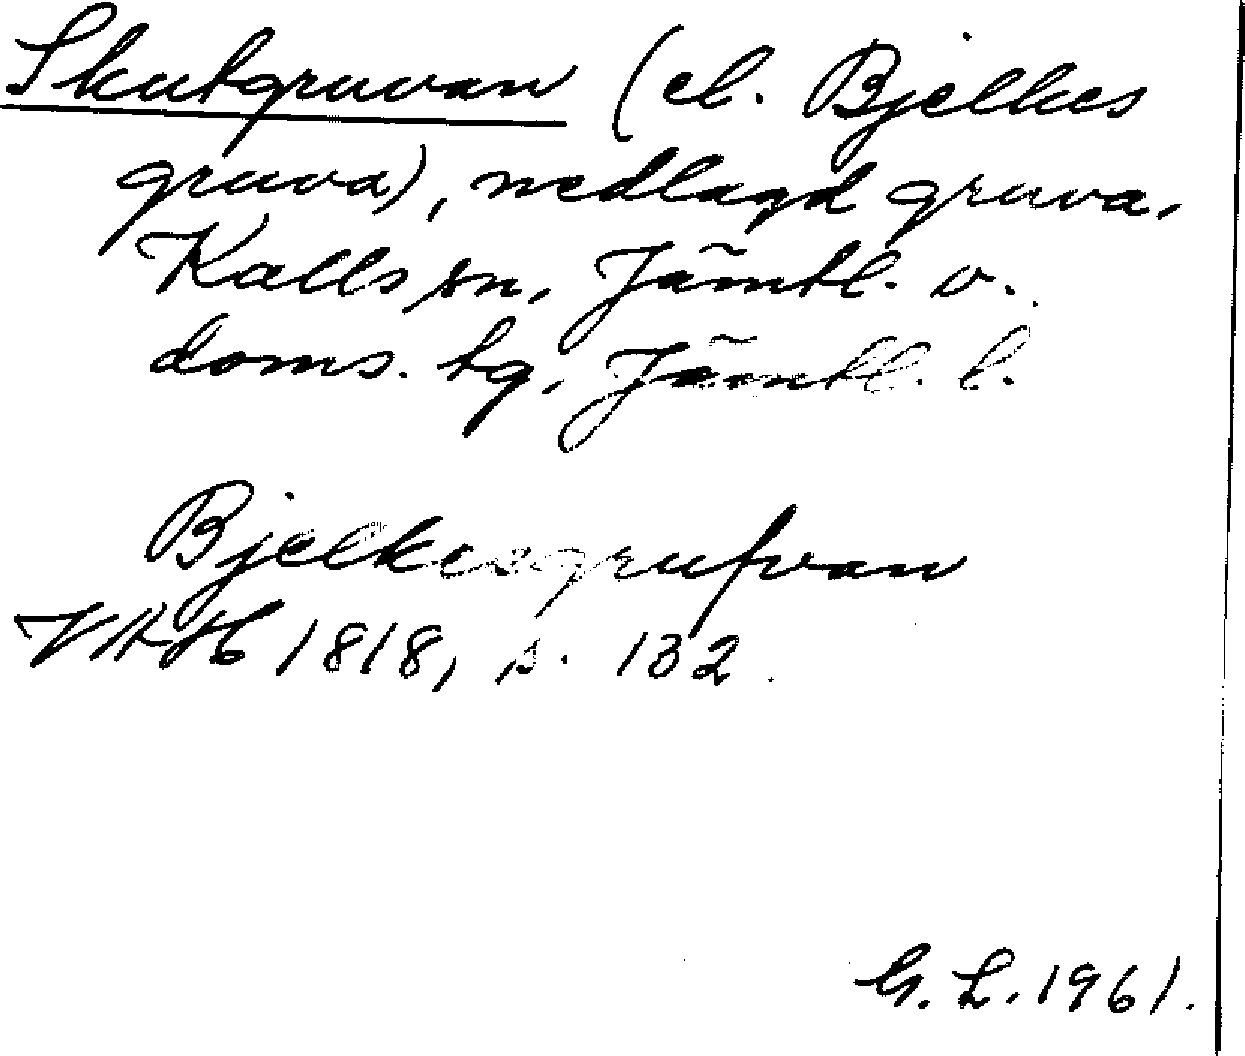 Skutgruvan (el. Bjelkes
gruva), nedlagd gruva,
Kalls sn, Jämtl. v.
doms. tg, Jämtl. l.
Bjelkesgrufvan
VAH 1818, s. 132.
G. L. 1961.